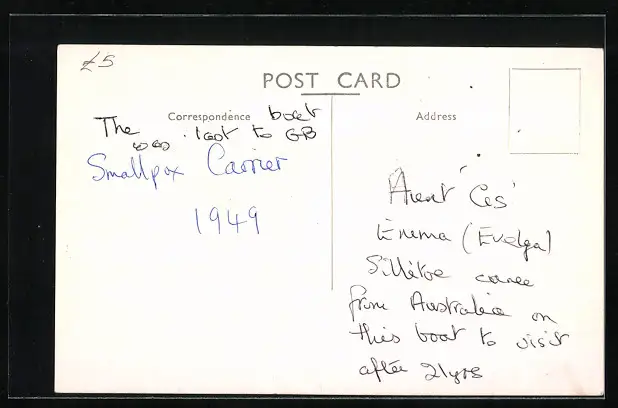 £5
POST CARD
Correspondence
Address
The boat
was last to GB
Smallpox Carrier
1949
Aunt 'Ces'
Emma (Evelga)
Sillitoe came
from Australia on
this boat to visit
after 21yrs